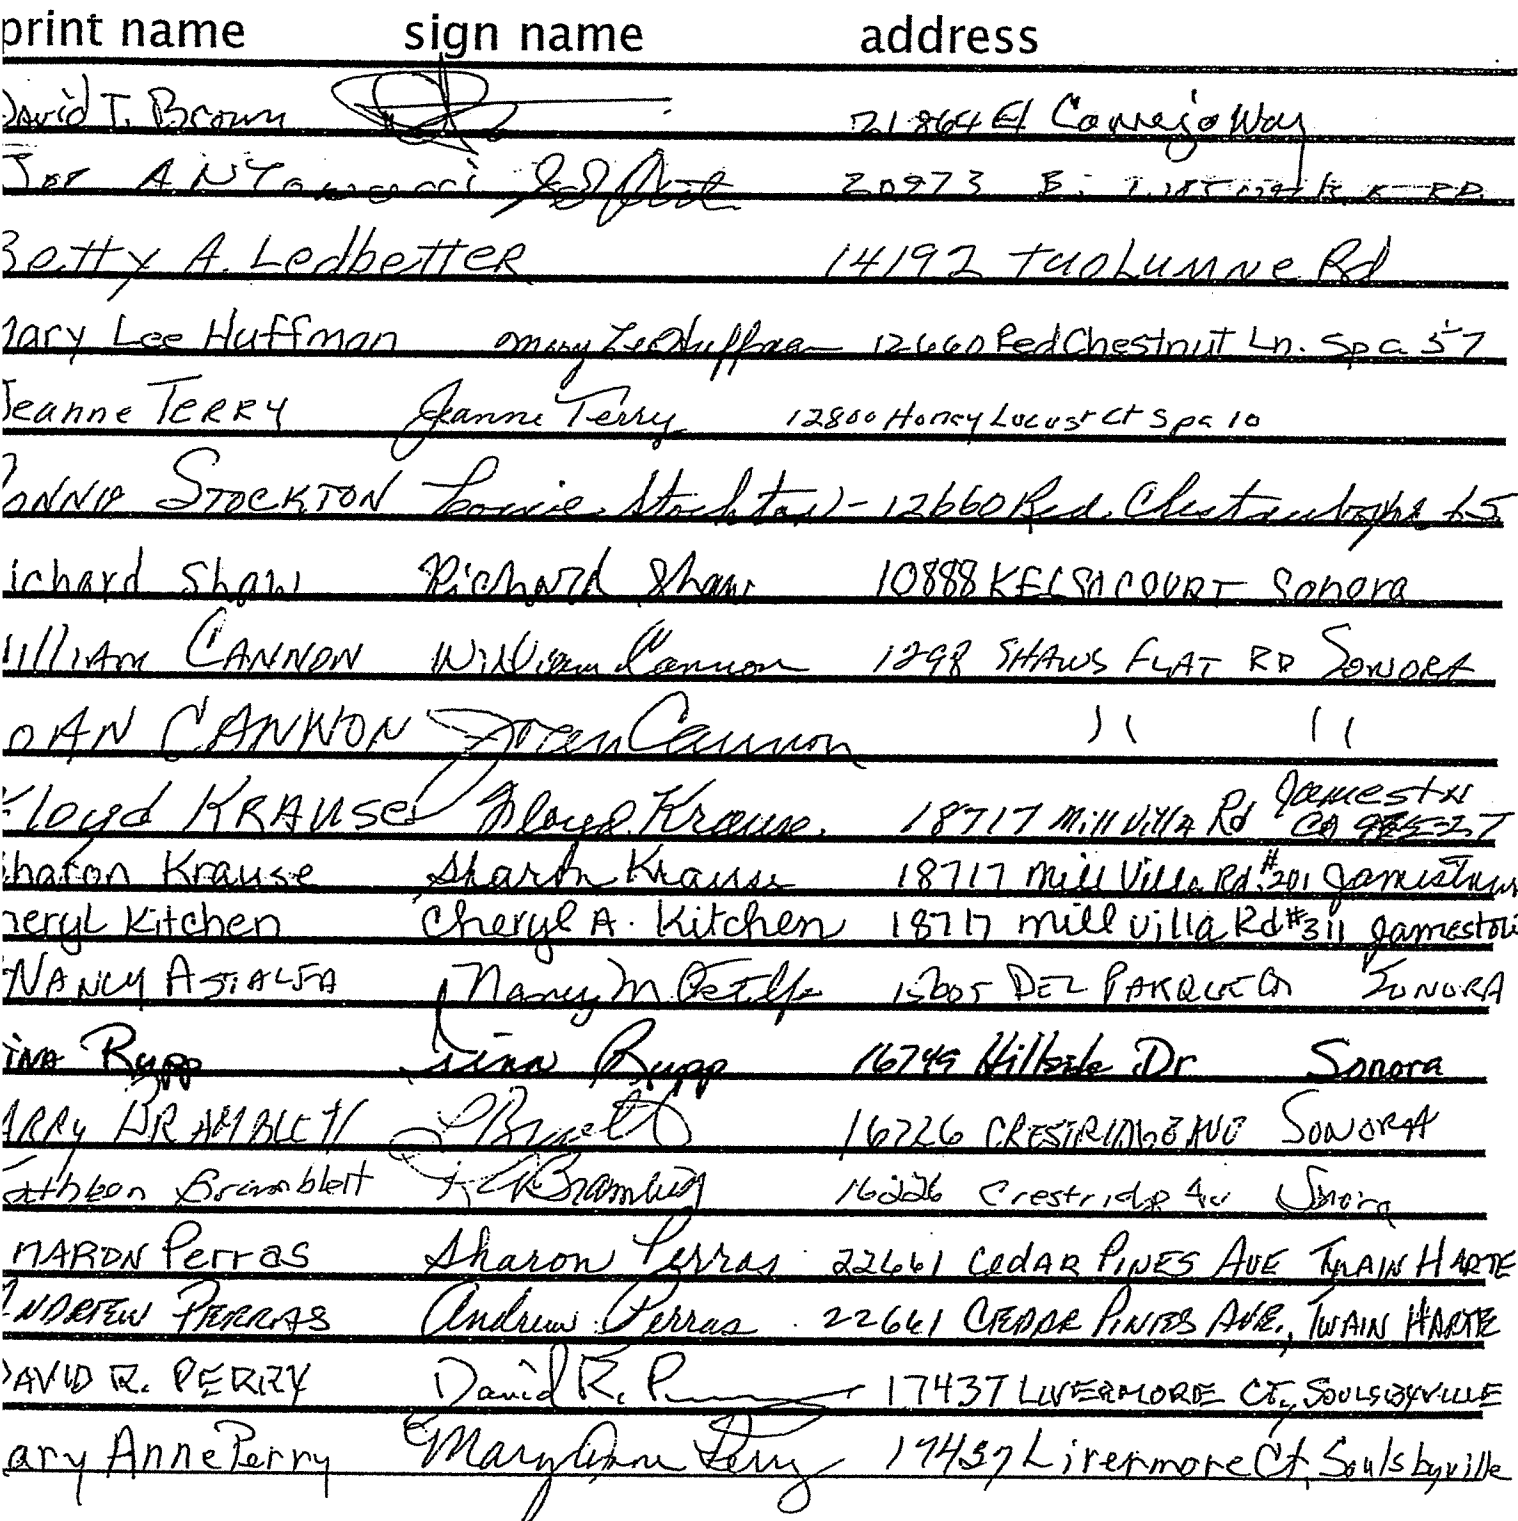 print name sign name address
David T. Brown 21864 El Way
20973
Betty A. Ledbetter 14192 tuolumne Rd
Mary Lee Huffman Mary Lee Huffman 12660 Red Chestnut Ln. Spa 57
Jeanne TERRY Jeanne Terry 12800 Honey Locust Ct Spa 10
STOCKTON Stockton - 12660 Red
Richard Shaw Richard Shaw 10888 COURT Sonora
William CANNON William Cannon 1298 SHAWS FLAT RD SONORA
JOAN CANNON Joan Cannon " "
Floyd KRAUSE Floyd Krause. 18717 Mill Villa Rd Jamestn CA
Sharon Krause Sharon Krause 18717 Mill Villa Rd. #201 Jamestown
heryl Kitchen Cheryl A. Kitchen 18717 mill villa Rd #311 Jamesto
NANCY Nancy M. DEL SONORA
INA Rupp Rupp 16749 Hillside Dr Sonora
ARRy BRAMBLETT 16226 CRESTRIDGE AVE SONORA
athleen Bramblett 16226 Crestridge Av Sonora
SHARON Perras Sharon Perras 22661 CEDAR PINES AVE TWAIN HARTE
ANDREW PERRAS Andrew Perras 22661 CEDAR PINES AVE., TWAIN HARTE
DAVID R. PERRY David R. P 17437 LIVERMORE CT, SOULSBYVILLE
ary Anne Perry Mary Anne Perry 17437 Livermore Ct, Soulsbyville